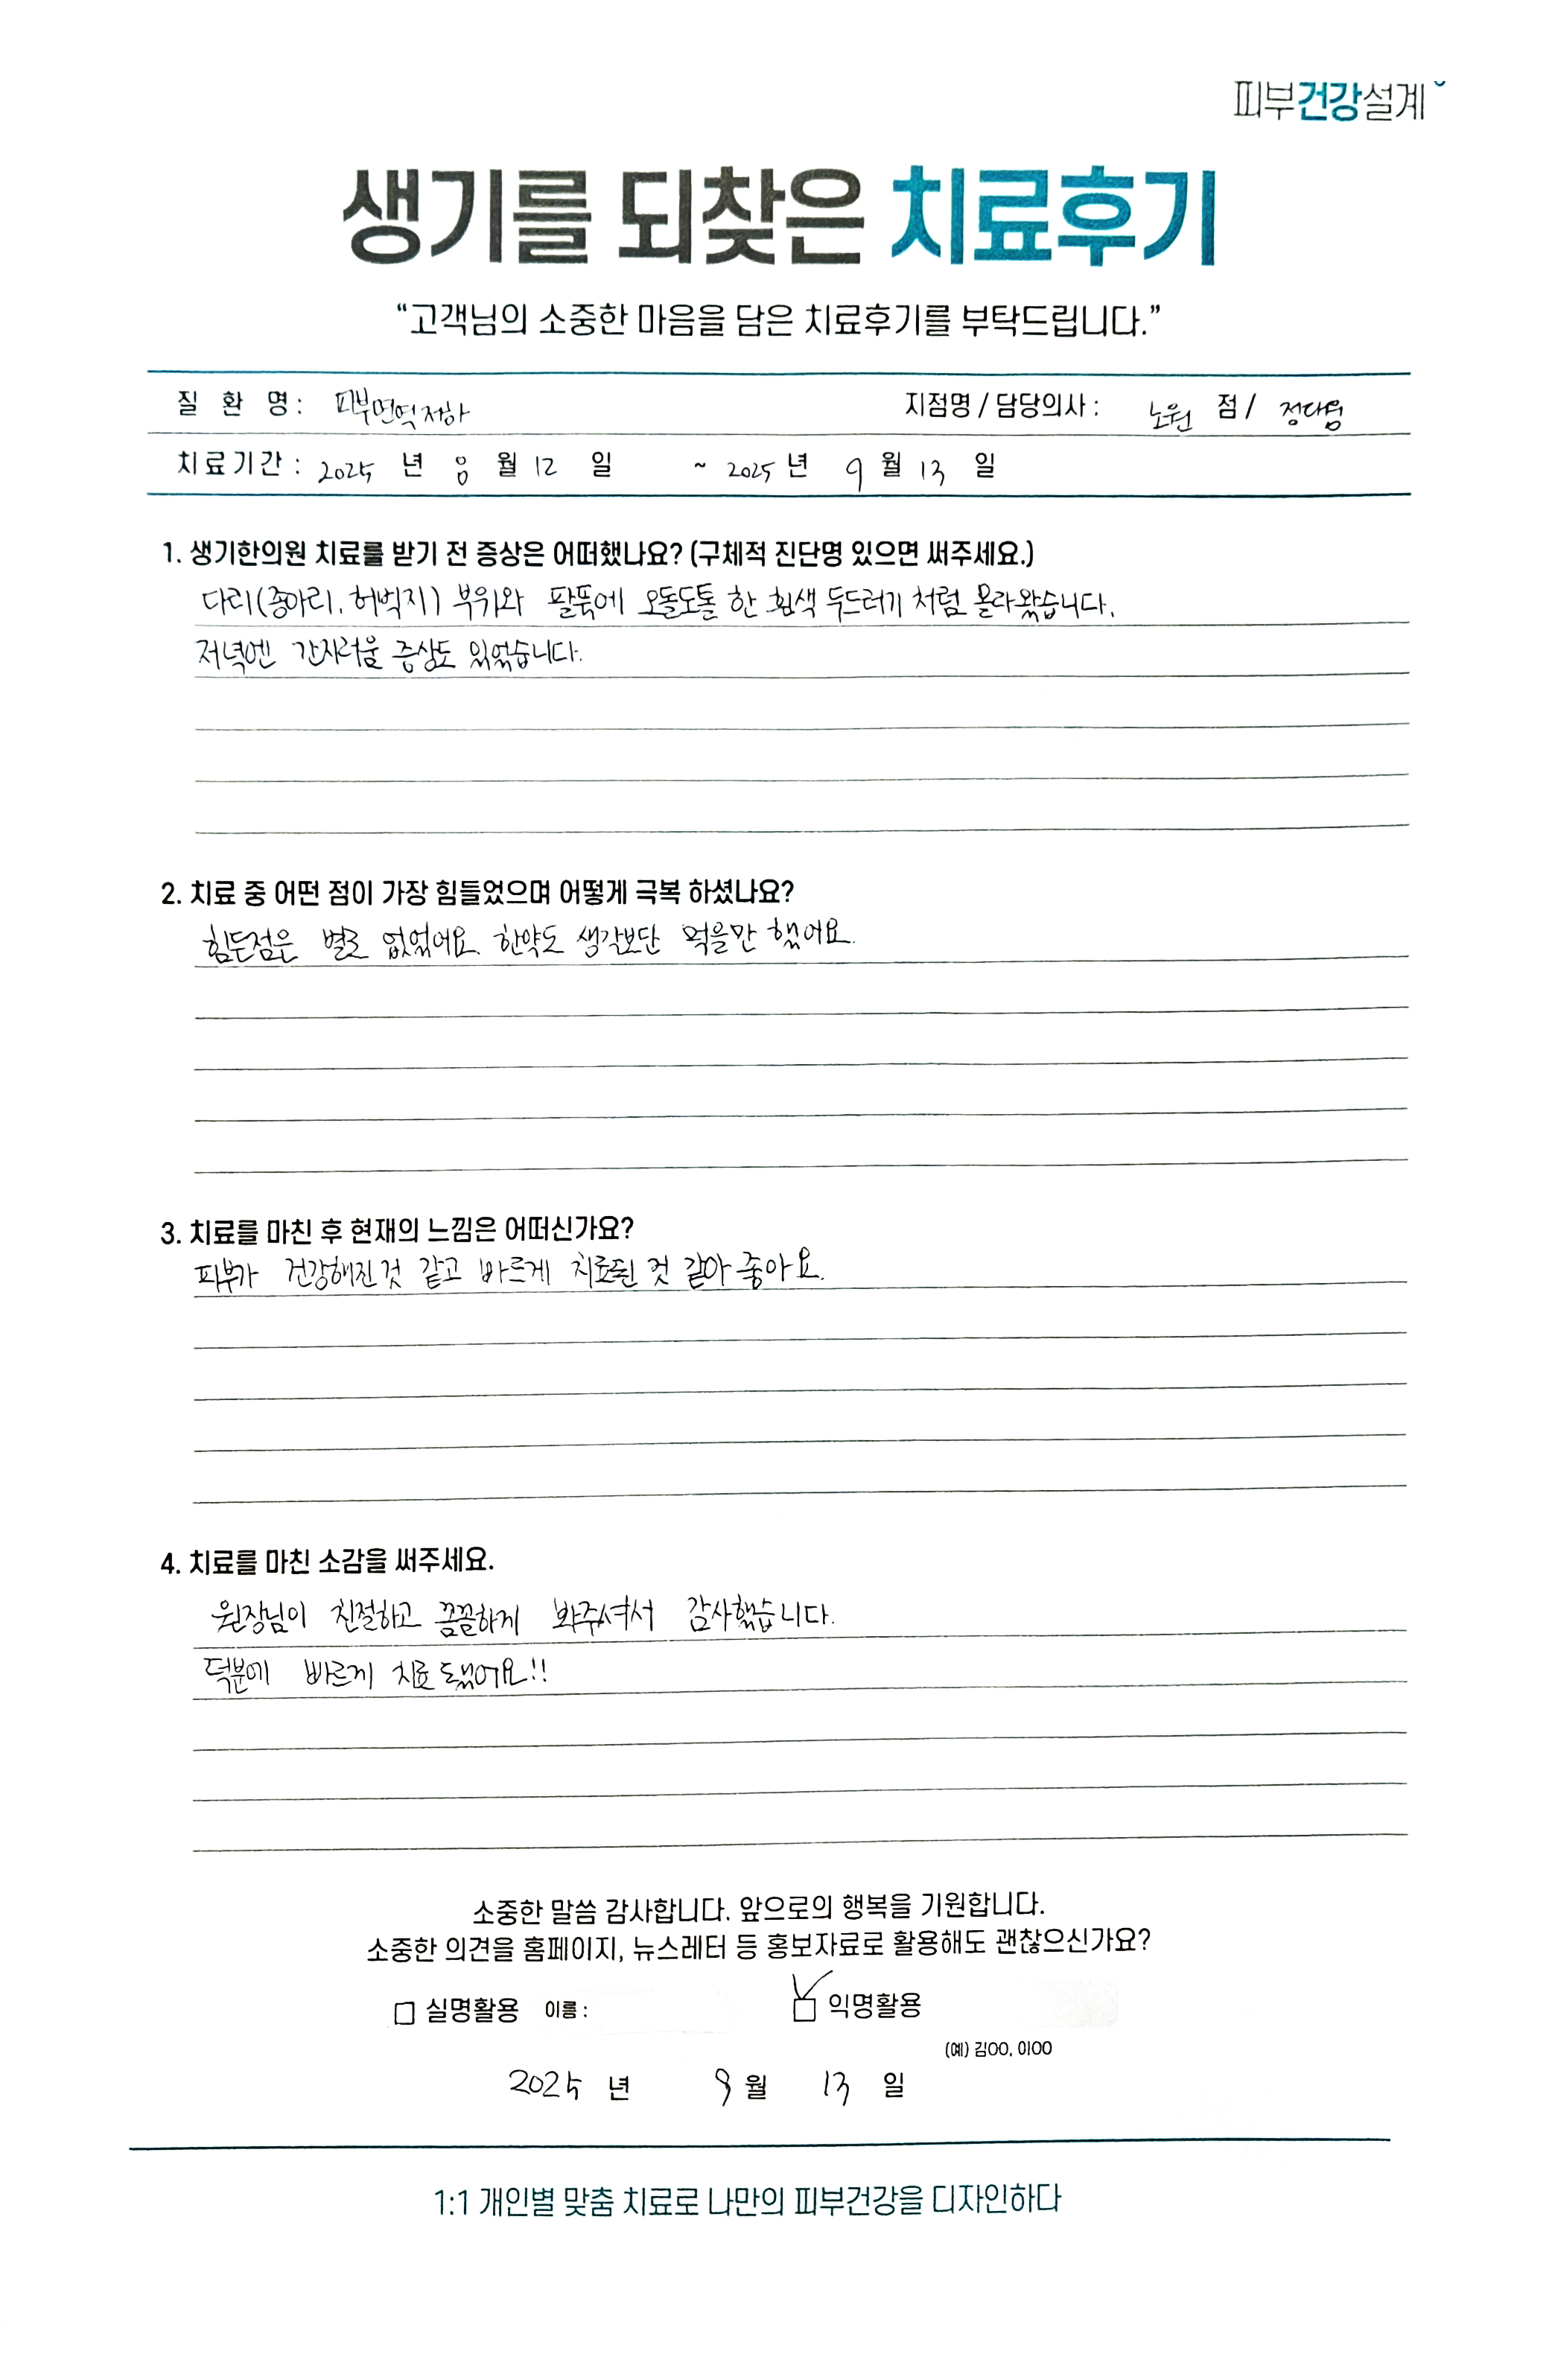 피부건강설계
생기를 되찾은 치료후기
“고객님의 소중한 마음을 담은 치료후기를 부탁드립니다.”
질 환 명 : 피부면역저하 지점명 / 담당의사 : 노원 점 /
치료기간 : 2025 년 8 월 12 일 ~ 2025 년 9 월 13 일
1. 생기한의원 치료를 받기 전 증상은 어떠했나요? (구체적 진단명 있으면 써주세요.)
다리(종아리, 허벅지) 부위와 팔뚝에 오돌도톨 한 흰색 두드러기 처럼 올라왔습니다.
저녁엔 간지러움 증상도 있었습니다.
2. 치료 중 어떤 점이 가장 힘들었으며 어떻게 극복 하셨나요?
힘든점은 별로 없었어요. 한약도 생각보단 먹을만 했어요.
3. 치료를 마친 후 현재의 느낌은 어떠신가요?
피부가 건강해진것 같고 빠르게 치료된 것 같아 좋아요.
4. 치료를 마친 소감을 써주세요.
원장님이 친절하고 꼼꼼하게 봐주셔서 감사했습니다.
덕분에 빠르게 치료됐어요!!
소중한 말씀 감사합니다. 앞으로의 행복을 기원합니다.
소중한 의견을 홈페이지, 뉴스레터 등 홍보자료로 활용해도 괜찮으신가요?
실명활용 이름 : 익명활용
(예) 김OO, 이OO
2025 년 9 월 13 일
1:1 개인별 맞춤 치료로 나만의 피부건강을 디자인하다